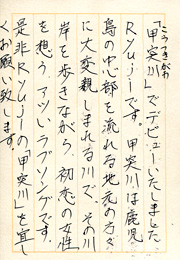 こうつきがわ
「甲突川」でデビューいたしました
Ryujiです。甲突川は鹿児
島の中心部を流れる地元の方々
に大変親しまれる川で、その川
岸を歩きながら、初恋の女性
を想う、アツいラブソングです。
是非Ryujiの「甲突川」を宜し
くお願い致します。